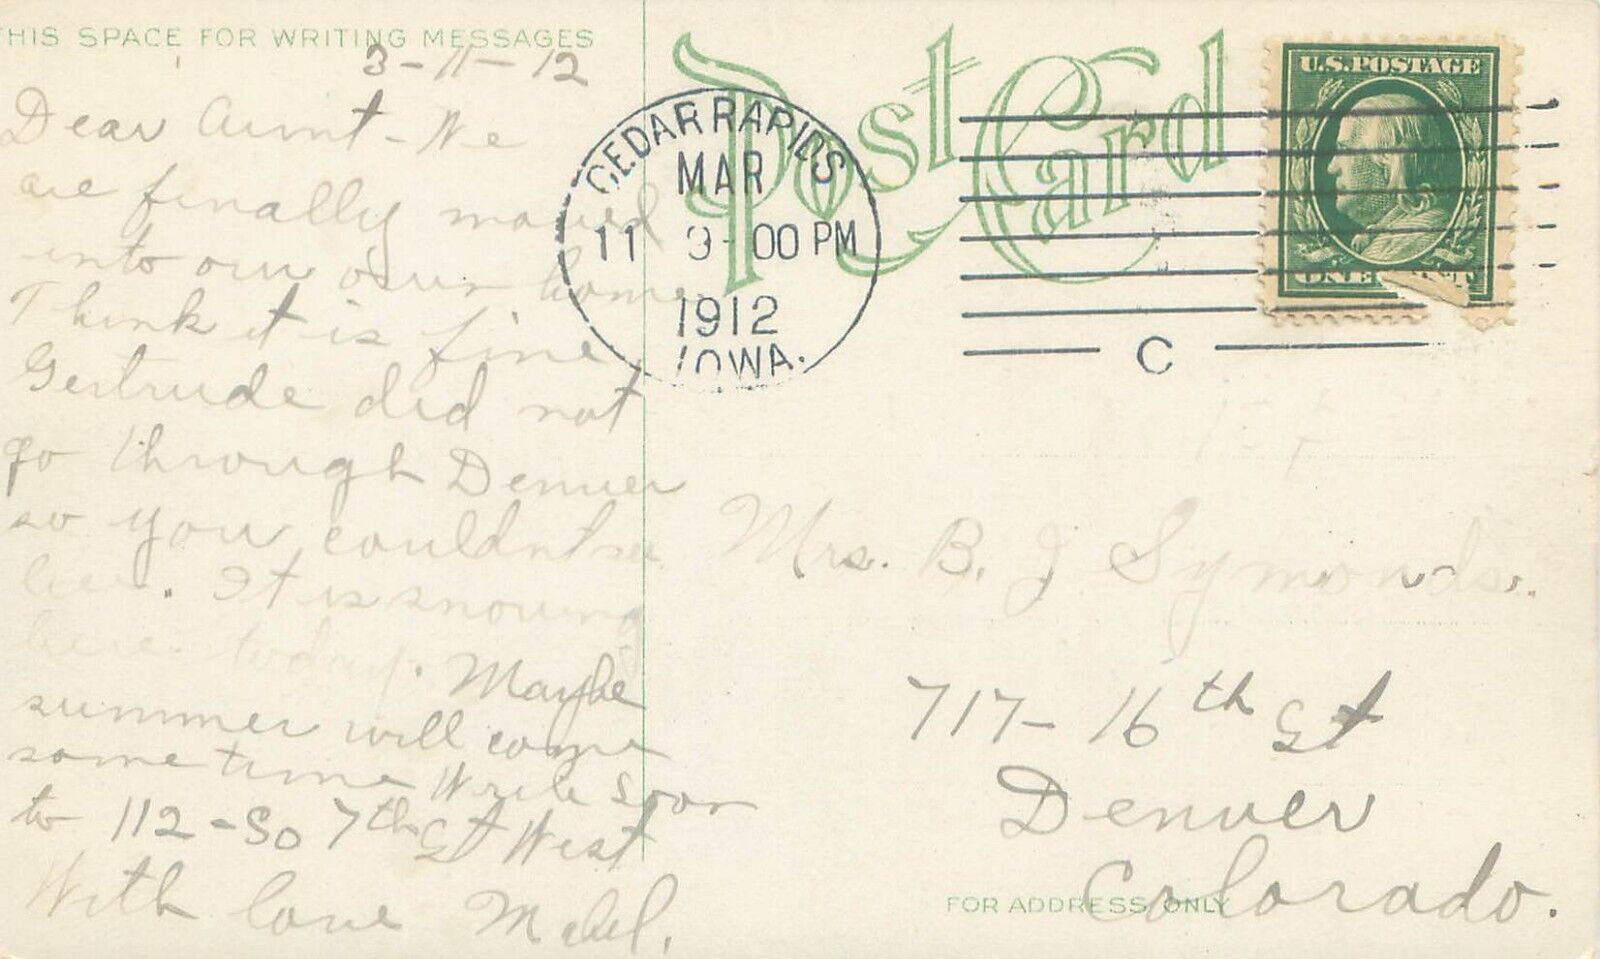 THIS SPACE FOR WRITING MESSAGES
3-11-12
Dear Aunt - We
are finally moved
into our own home
Think it is fine.
Gertrude did not
go through Denver
so you couldnt see
her. It is snowing
here today. Maybe
summer will come
some time Write Soon
to 112 - So 7th St West
With love Mabel.
Post Card
CEDAR RAPIDS
MAR
11 9-00 PM
1912
IOWA.
C
U.S. POSTAGE
ONE CENT
Mrs. B. J Symonds.
717 - 16th St
Denver
Colorado.
FOR ADDRESS ONLY